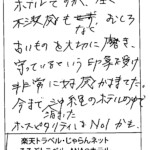 ホテルですが、
不潔感もなく、むしろ
古いものを大切に磨き、
守っているという印象を受け
非常に好感がもてました。
今まで沖縄のホテルの中で
満まった
ホスピタリティはNo1かも。
楽天トラベル・じゃらんネット